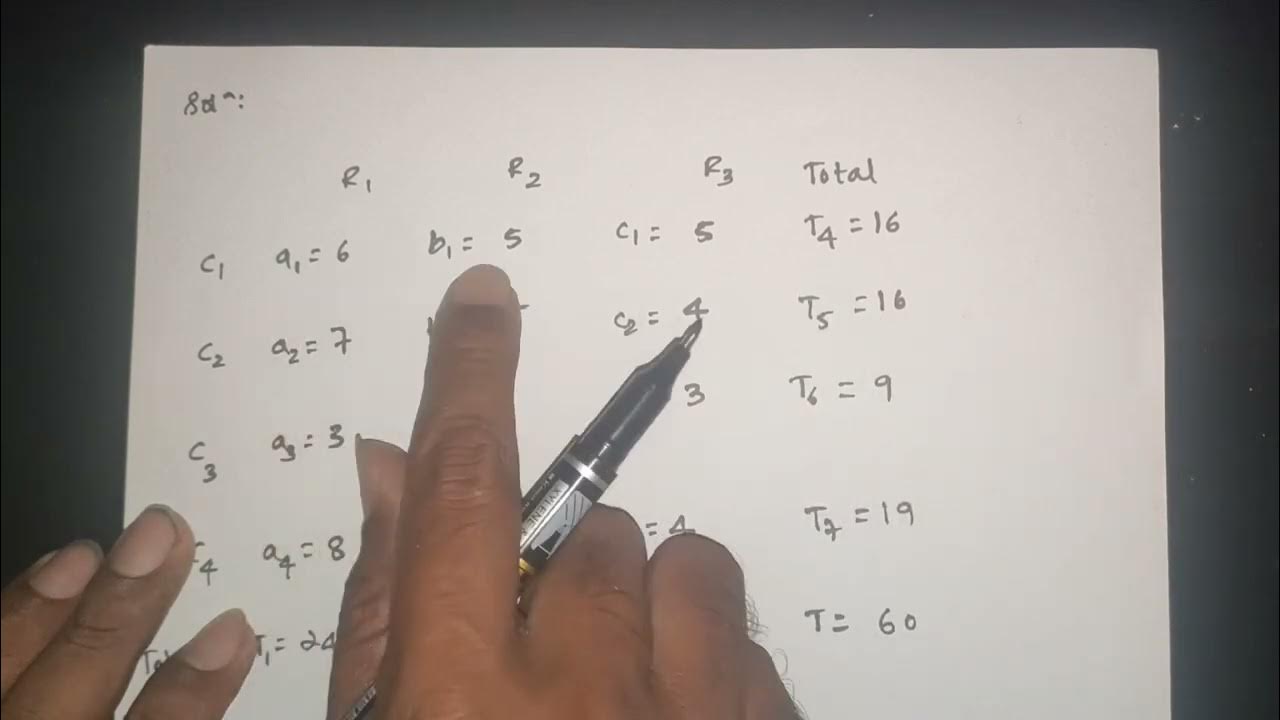 Solⁿ:
R₁ R₂ R₃ Total
C₁ a₁ = 6 b₁ = 5 c₁ = 5 T₄ = 16
C₂ a₂ = 7 c₂ = 4 T₅ = 16
C₃ a₃ = 3 3 T₆ = 9
C₄ a₄ = 8 = 4 T₇ = 19
T₁ = 24 T = 60
XYLENE